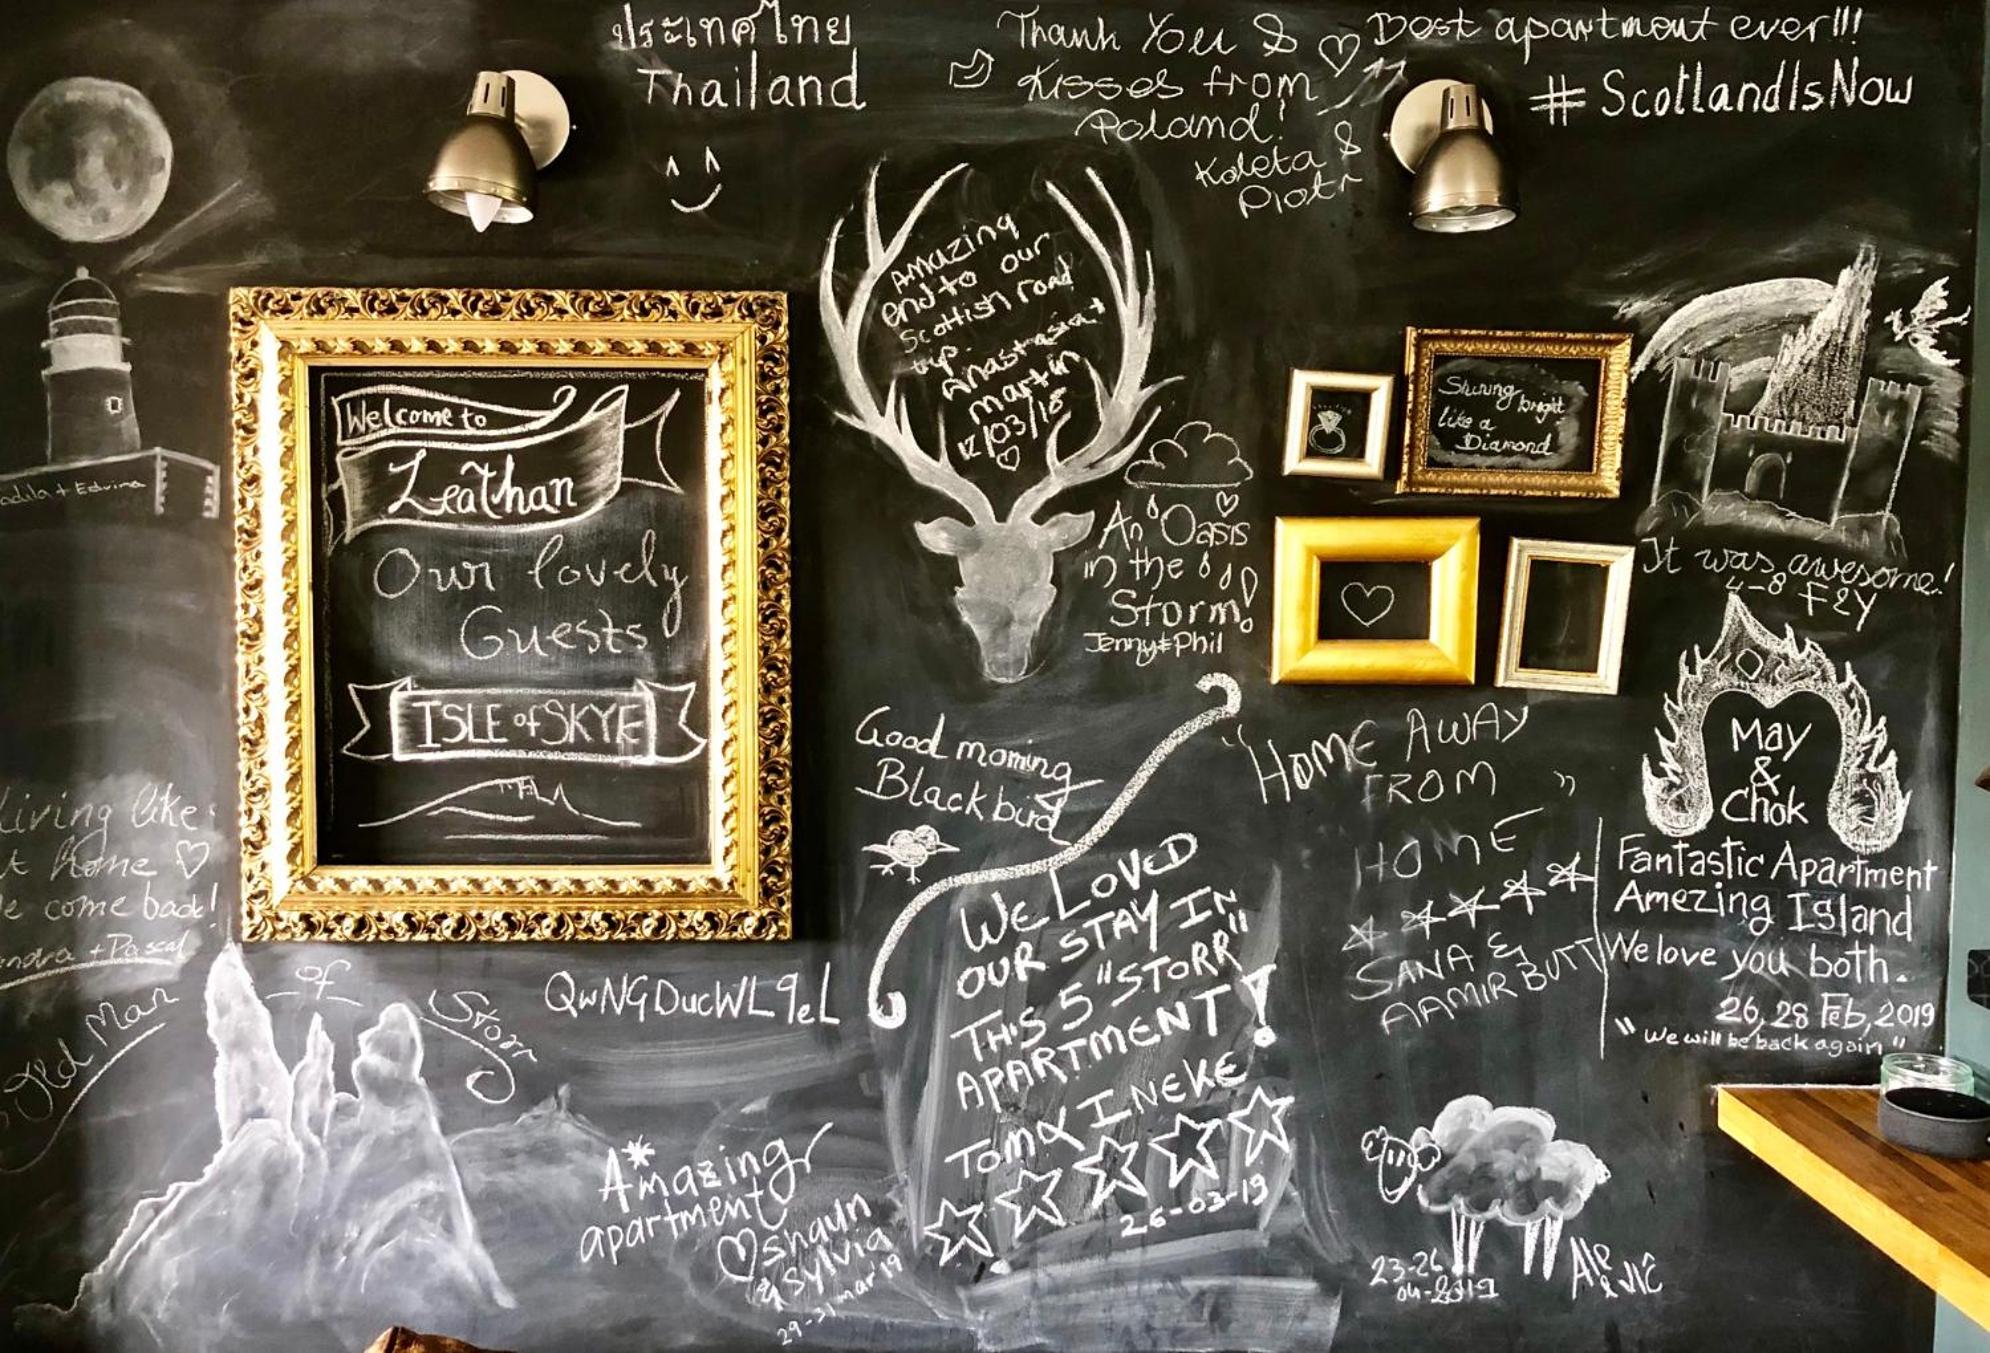 ประเทศไทย
Thailand
Thank You &
Kisses from
Poland!
Koleta &
Piotr
Best apartment ever!!!
#ScotlandIsNow
Amazing
end to our
Scottish road
trip.
Anastasia +
martin
12/03/18
Welcome to
Leathan
Our lovely
Guests
ISLE of SKYE
Shining bright
like a
Diamond
An Oasis
in the
Storm!
Jenny & Phil
It was awesome!
4-8 F&Y
+ Edvina
Good morning
Blackbird
"HOME AWAY
FROM "
HOME
SANA &
AAMIR BUTT
May
&
Chok
Fantastic Apartment
Amezing Island
We love you both.
26, 28 Feb, 2019
"We will be back again"
Living like
at home
come back!
+ Pascal
Old Man
of
Storr
QwNGDucWL9eL
WE LOVED
OUR STAY IN
THIS 5 "STORR"
APARTMENT!
TOM & INEKE
26-03-19
Amazing
apartment
shaun
& Sylvia
29-31 mar'19
23-26
04-2019